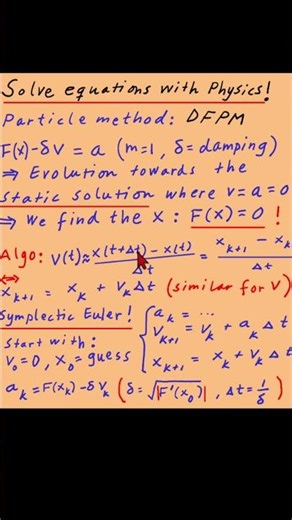 Solve equations with Physics!
Particle method: DFPM
F(x)-δv = a (m=1, δ=damping)
⇒ Evolution towards the
static solution where v=a=0
⇒ We find the x : F(x)=0 !
Algo: v(t)≈ (x(t+Δt) - x(t))/Δt = (x_{k+1} - x_k)/Δt
⇔ x_{k+1} = x_k + v_k Δt (similar for v)
Symplectic Euler!
{ a_k = ...
v_{k+1} = v_k + a_k Δt
x_{k+1} = x_k + v_k Δt
start with:
v_0=0, x_0=guess
a_k = F(x_k) - δ v_k ( δ = √|F'(x_0)| , Δt = 1/δ )